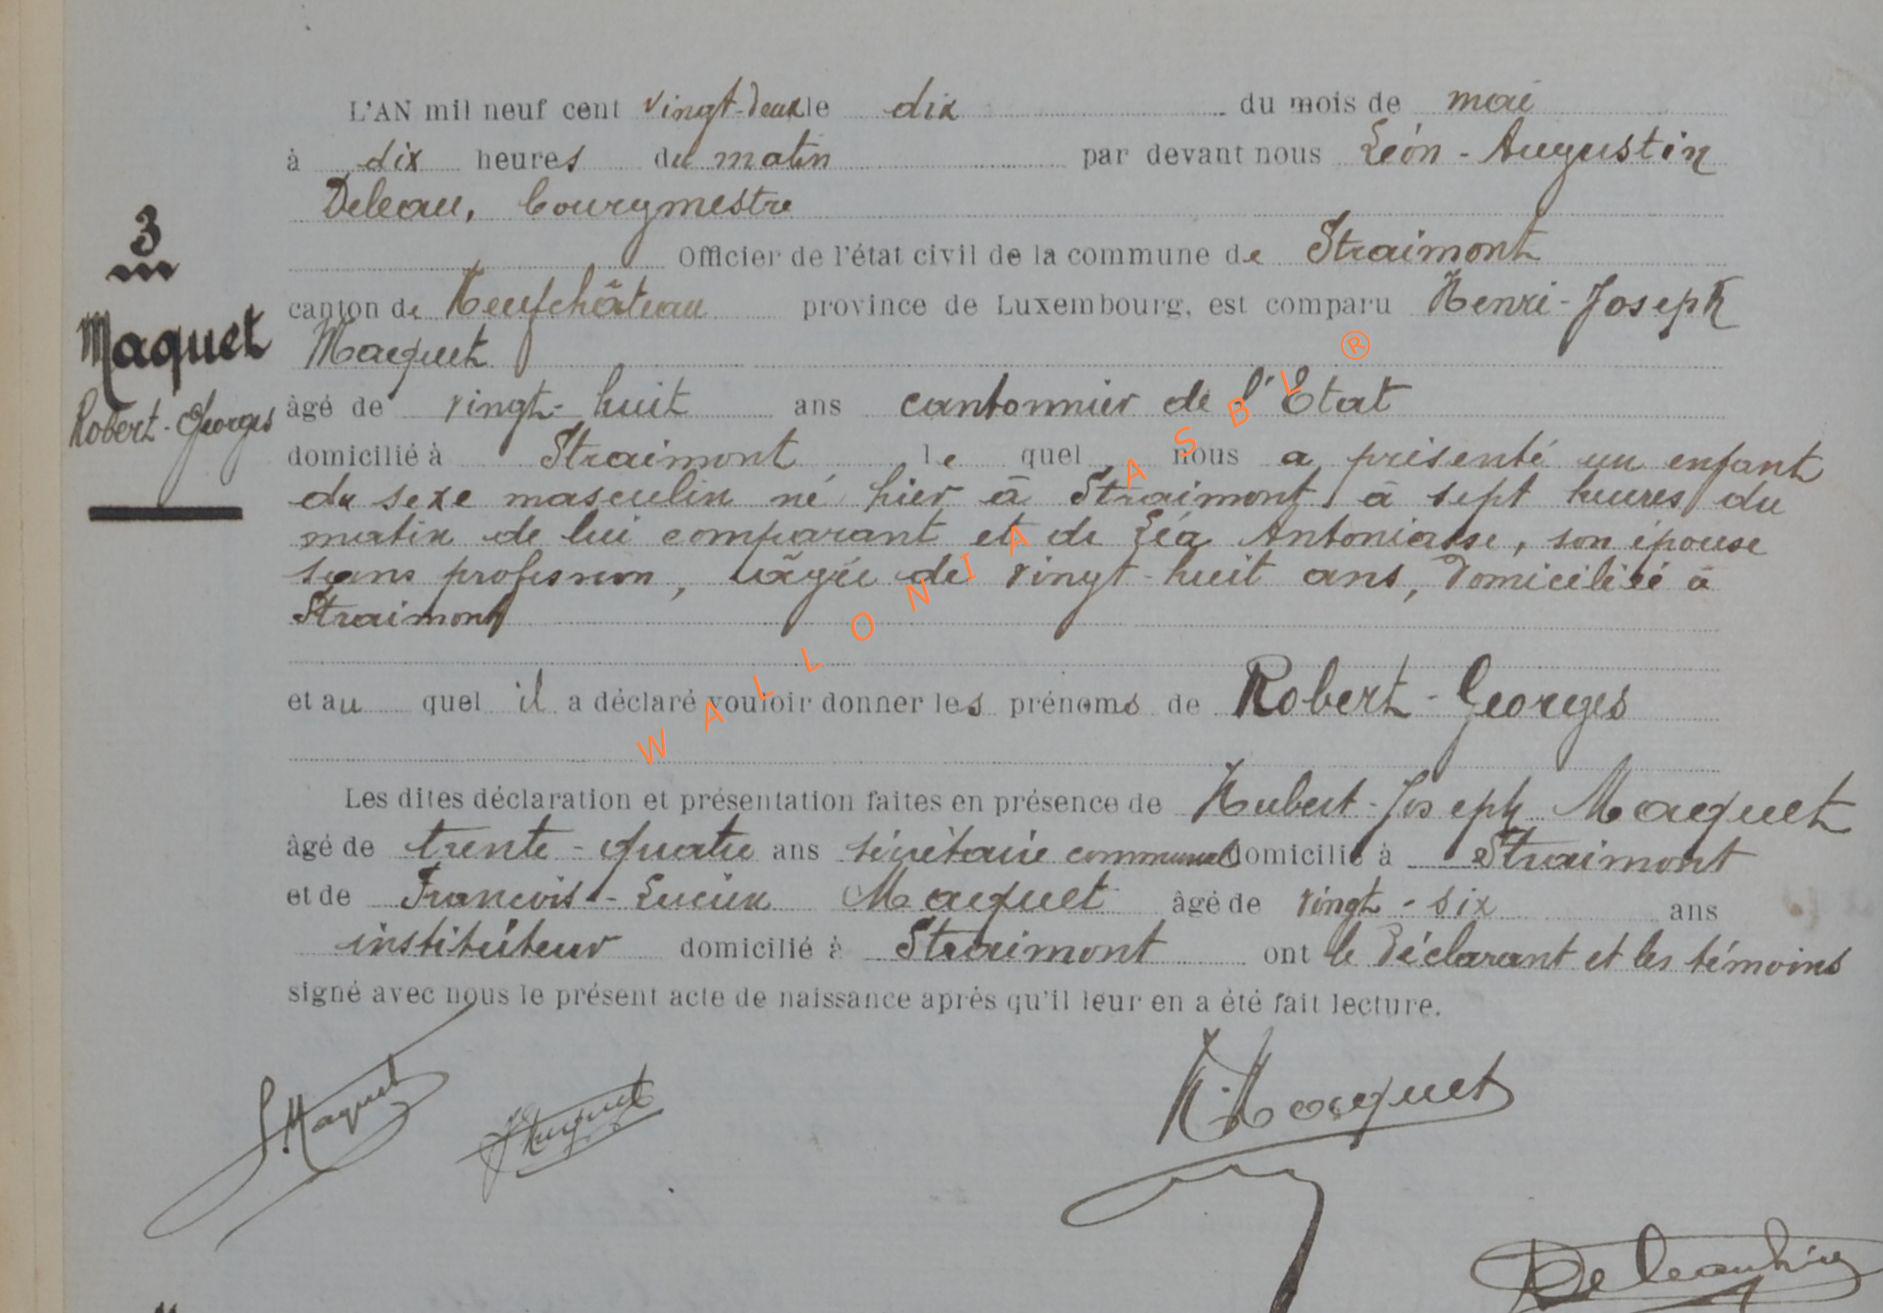 L'AN mil neuf cent vingt-deux le dix du mois de mai
à dix heures du matin par devant nous Léon-Augustin
Deleau, bourgmestre
Officier de l'état civil de la commune de Straimont
canton de Neufchâteau province de Luxembourg, est comparu Henri-Joseph
Maquet
âgé de vingt-huit ans cantonnier de l'Etat
domicilié à Straimont lequel nous a présenté un enfant
du sexe masculin né hier à Straimont, à sept heures du
matin de lui comparant et de Léa Antoniasse, son épouse
sans profession, âgée de vingt-huit ans, domiciliée à
Straimont
et au quel il a déclaré vouloir donner les prénoms de Robert-Georges
Les dites déclaration et présentation faites en présence de Hubert-Joseph Maquet
âgé de trente-quatre ans secrétaire communal domicilié à Straimont
et de François-Lucien Maquet âgé de vingt-six ans
instituteur domicilié à Straimont ont le déclarant et les témoins
signé avec nous le présent acte de naissance après qu'il leur en a été fait lecture.
3
Maquet
Robert-Georges
WALLONIA ASBL ®
Maquet
Maquet
H. Maquet